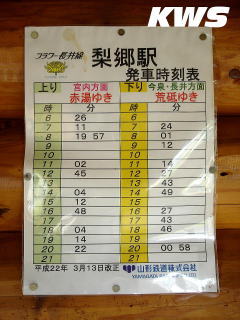 KWS
フラワー長井線
梨郷駅
発車時刻表
上り 宮内方面 赤湯ゆき 下り 今泉・長井方面 荒砥ゆき
時 時
6 26 6
7 11 7 24
8 19 57 8 01
9 9
11 02 11
12 45 12 27
14 04 14
15 15
16 48 16
18 18 46
19 04 19
20 20 00 58
21 21
平成22年 3月13日改正 山形鉄道株式会社